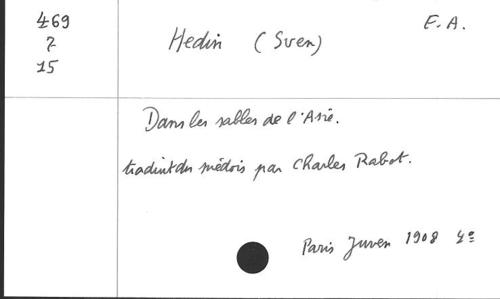 469
7
15
Hedin (Sven)
E.A.
Dans les sables de l'Asie.
traduit du suédois par Charles Rabot.
Paris Juven 1908 4º